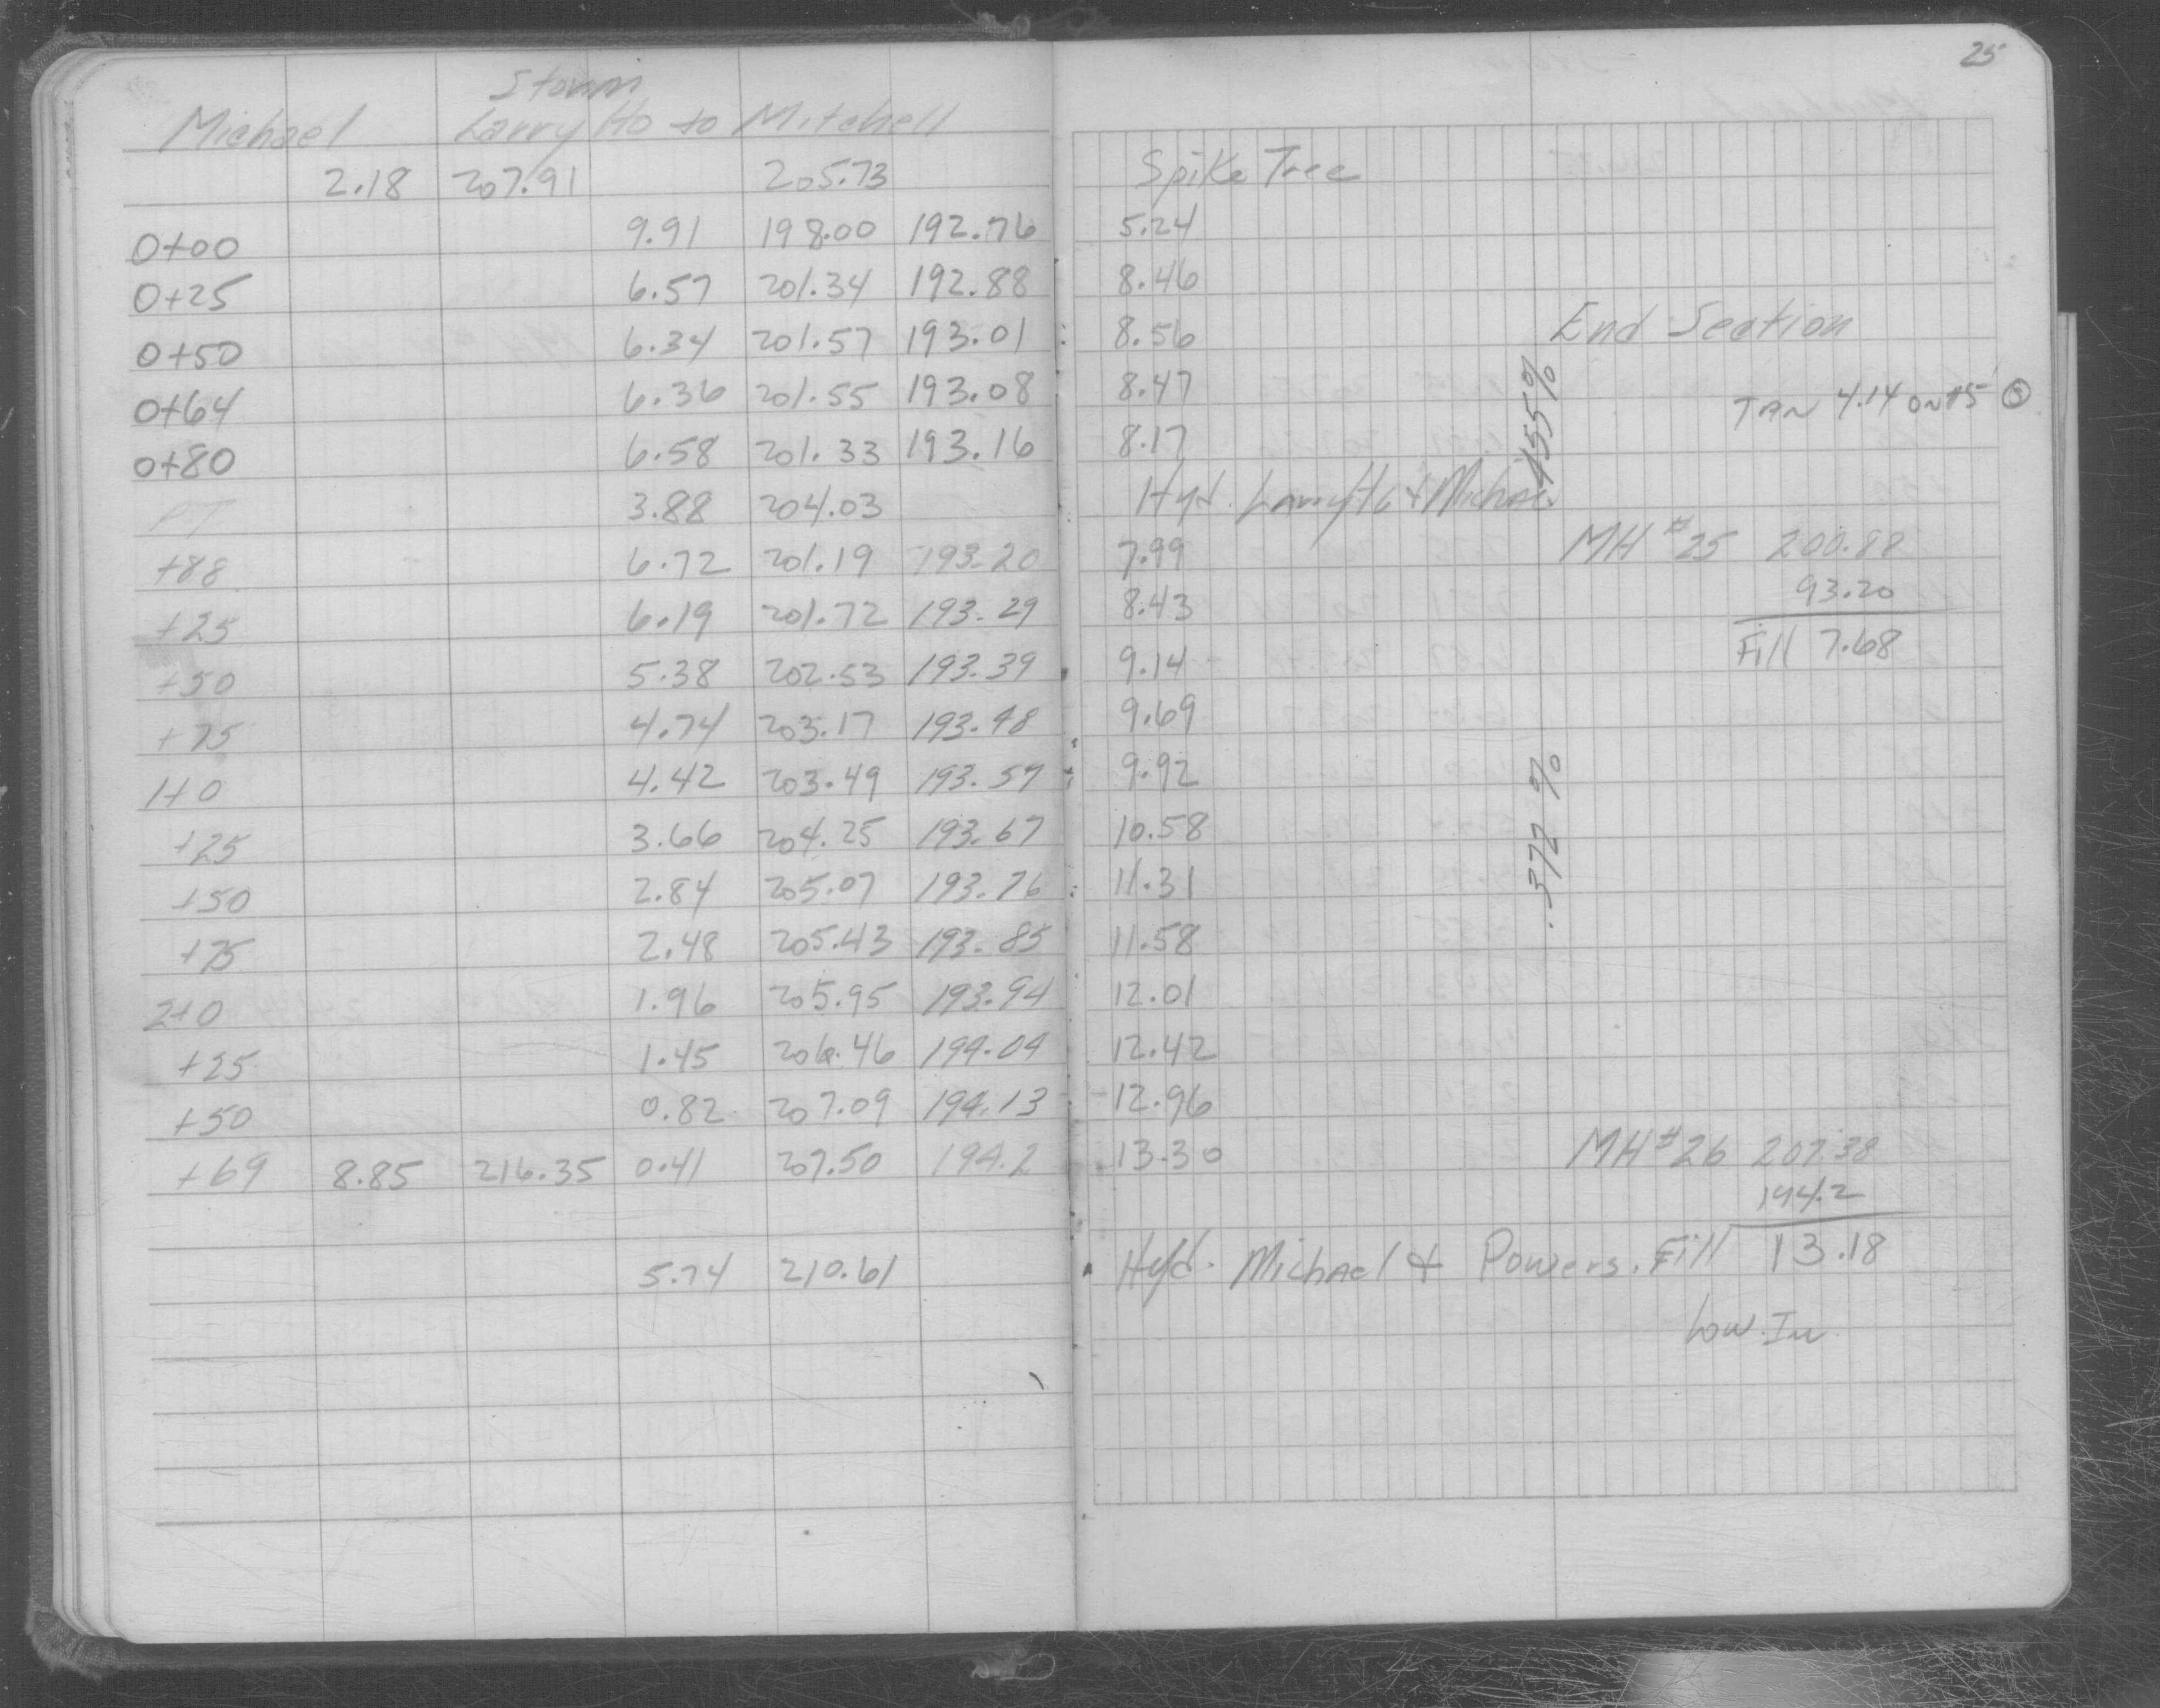 25
Storm
Michael Larry Ho to Mitchell
2.18 207.91 205.73 Spike Tree
0+00 9.91 198.00 192.76 5.24
0+25 6.57 201.34 192.88 8.46
End Section
0+50 6.34 201.57 193.01 8.56
0+64 6.36 201.55 193.08 8.47 TAN 4.14 on 15
.455%
0+80 6.58 201.33 193.16 8.17
PT 3.88 204.03 Hyd. Larry Ho + Michael
+88 6.72 201.19 193.20 7.99 MH #25 200.88
93.20
+25 6.19 201.72 193.29 8.43
Fill 7.68
+50 5.38 202.53 193.39 9.14
+75 4.74 203.17 193.48 9.69
1+0 4.42 203.49 193.57 9.92
+25 3.66 204.25 193.67 10.58
.372%
+50 2.84 205.07 193.76 11.31
+75 2.48 205.43 193.85 11.58
2+0 1.96 205.95 193.94 12.01
+25 1.45 206.46 194.04 12.42
+50 0.82 207.09 194.13 12.96
+69 8.85 216.35 0.41 207.50 194.2 13.30 MH #26 207.38
194.2
5.74 210.61 Hyd. Michael + Powers. Fill 13.18
Low In